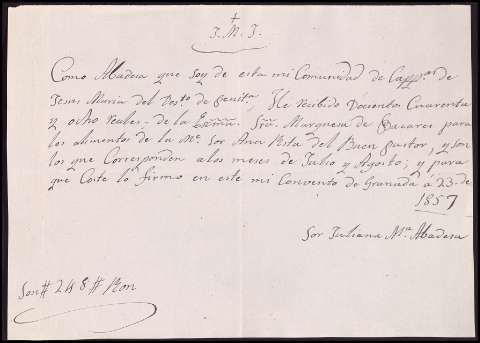 J. M. J.
Como Abadesa que soy de esta mi Comunidad de Capp.nas de
Jesus Maria del de , He recibido Docientos Cuarenta
y ocho reales - de la Exma. Sra. Marquesa de para
los alimentos de la Me. Sor Ana Rita del Buen Pastor, y son
los que Corresponden alos meses de Julio y Agosto; y para
que Coste lo firmo en este mi Convento de Granada a 23 de
1857
Sor Juliana Ma. Abadesa
Son# 248 # Ron